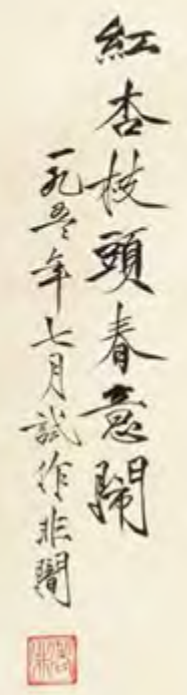 紅杏枝頭春意鬧
一九五〻年七月試作非闇